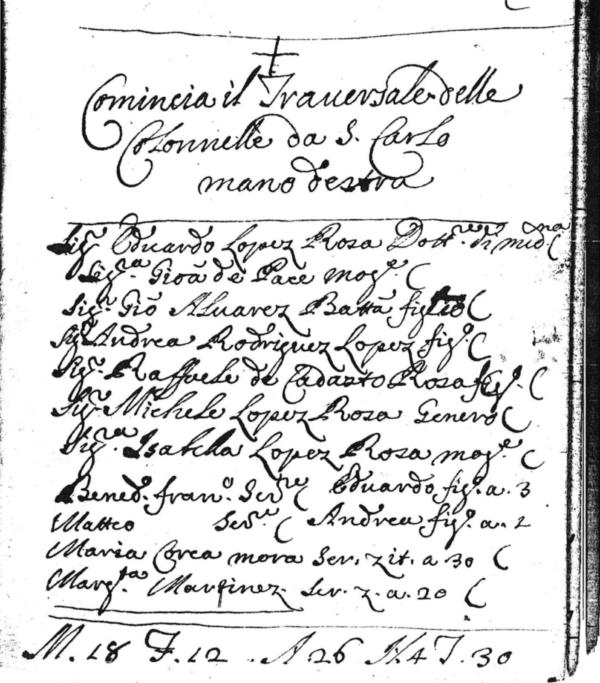 Comincia il Trauersale delle
Colonnelle da S. Carlo
mano destra
Sig.r Eduardo Lopez Rosa Dott.re di med.na (
Sig.ra Gioa de Pace mog.e (
Sig.r Gio Aluarez Batta figlio (
Sig.r Andrea Rodriguez Lopez fig.o (
Sig.r Raffaele de Rosa fig.o (
Sig.r Michele Lopez Rosa Genero (
Sig.ra Isabella Lopez Rosa mog.e (
Bened.o fran.o Ser.re ( Eduardo fig.o a. 3
Matteo Ser.re ( Andrea fig.o a. 2
Maria Corea mora Ser. zit. a 30 (
Marg.ta Martinez Ser. z. a. 20 (
M. 18 F. 12 . A 26 N. 4 T. 30